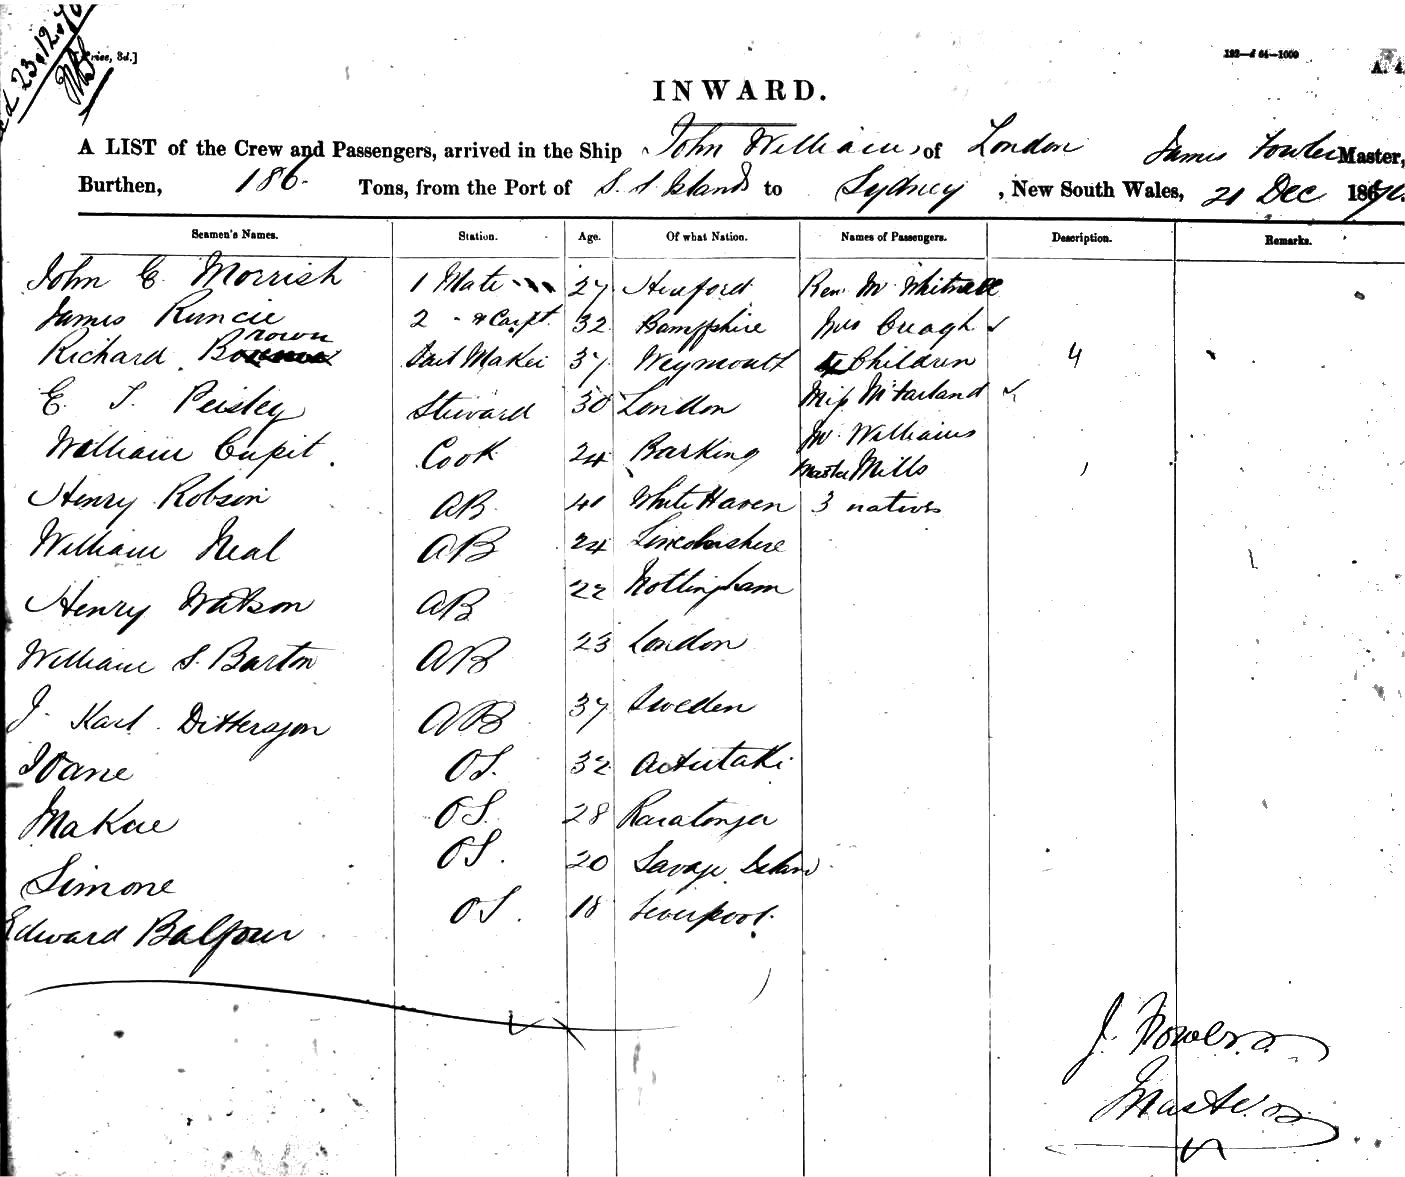 23.12.70
[Price, 3d.]
192—d 64—1000
A. 4
INWARD.
A LIST of the Crew and Passengers, arrived in the Ship John Williams of London James Fowler Master,
Burthen, 186 Tons, from the Port of S. S. Islands to Sydney, New South Wales, 21 Dec 1870.
Seamen's Names. Station. Age. Of what Nation. Names of Passengers. Description. Remarks.
John E Morrish 1 Mate 27 Hereford Rev. Mr Whitmee
James Runcie 2 - & Carpt. 32 Bamffshire Mrs Creagh
Richard Brown Sail Maker 37 Weymouth 4 Children 4
E. T. Peisley Steward 30 London Miss McFarland
William Cupit. Cook 24 Barking Mr Williams
Master Mills
Henry Robson AB. 41 White Haven 3 natives
William Neal AB 24 Lincolnshire
Henry Watson AB 22 Nottingham
William S. Barton AB 23 London
J. Karl Dittersjon AB 37 Sweden
Ioane OS. 32 Aitutaki
Makue OS. 28 Raratonga
Simone OS. 20 Savage Island
Edward Balfour OS. 18 Liverpool.
J. Fowler
Master